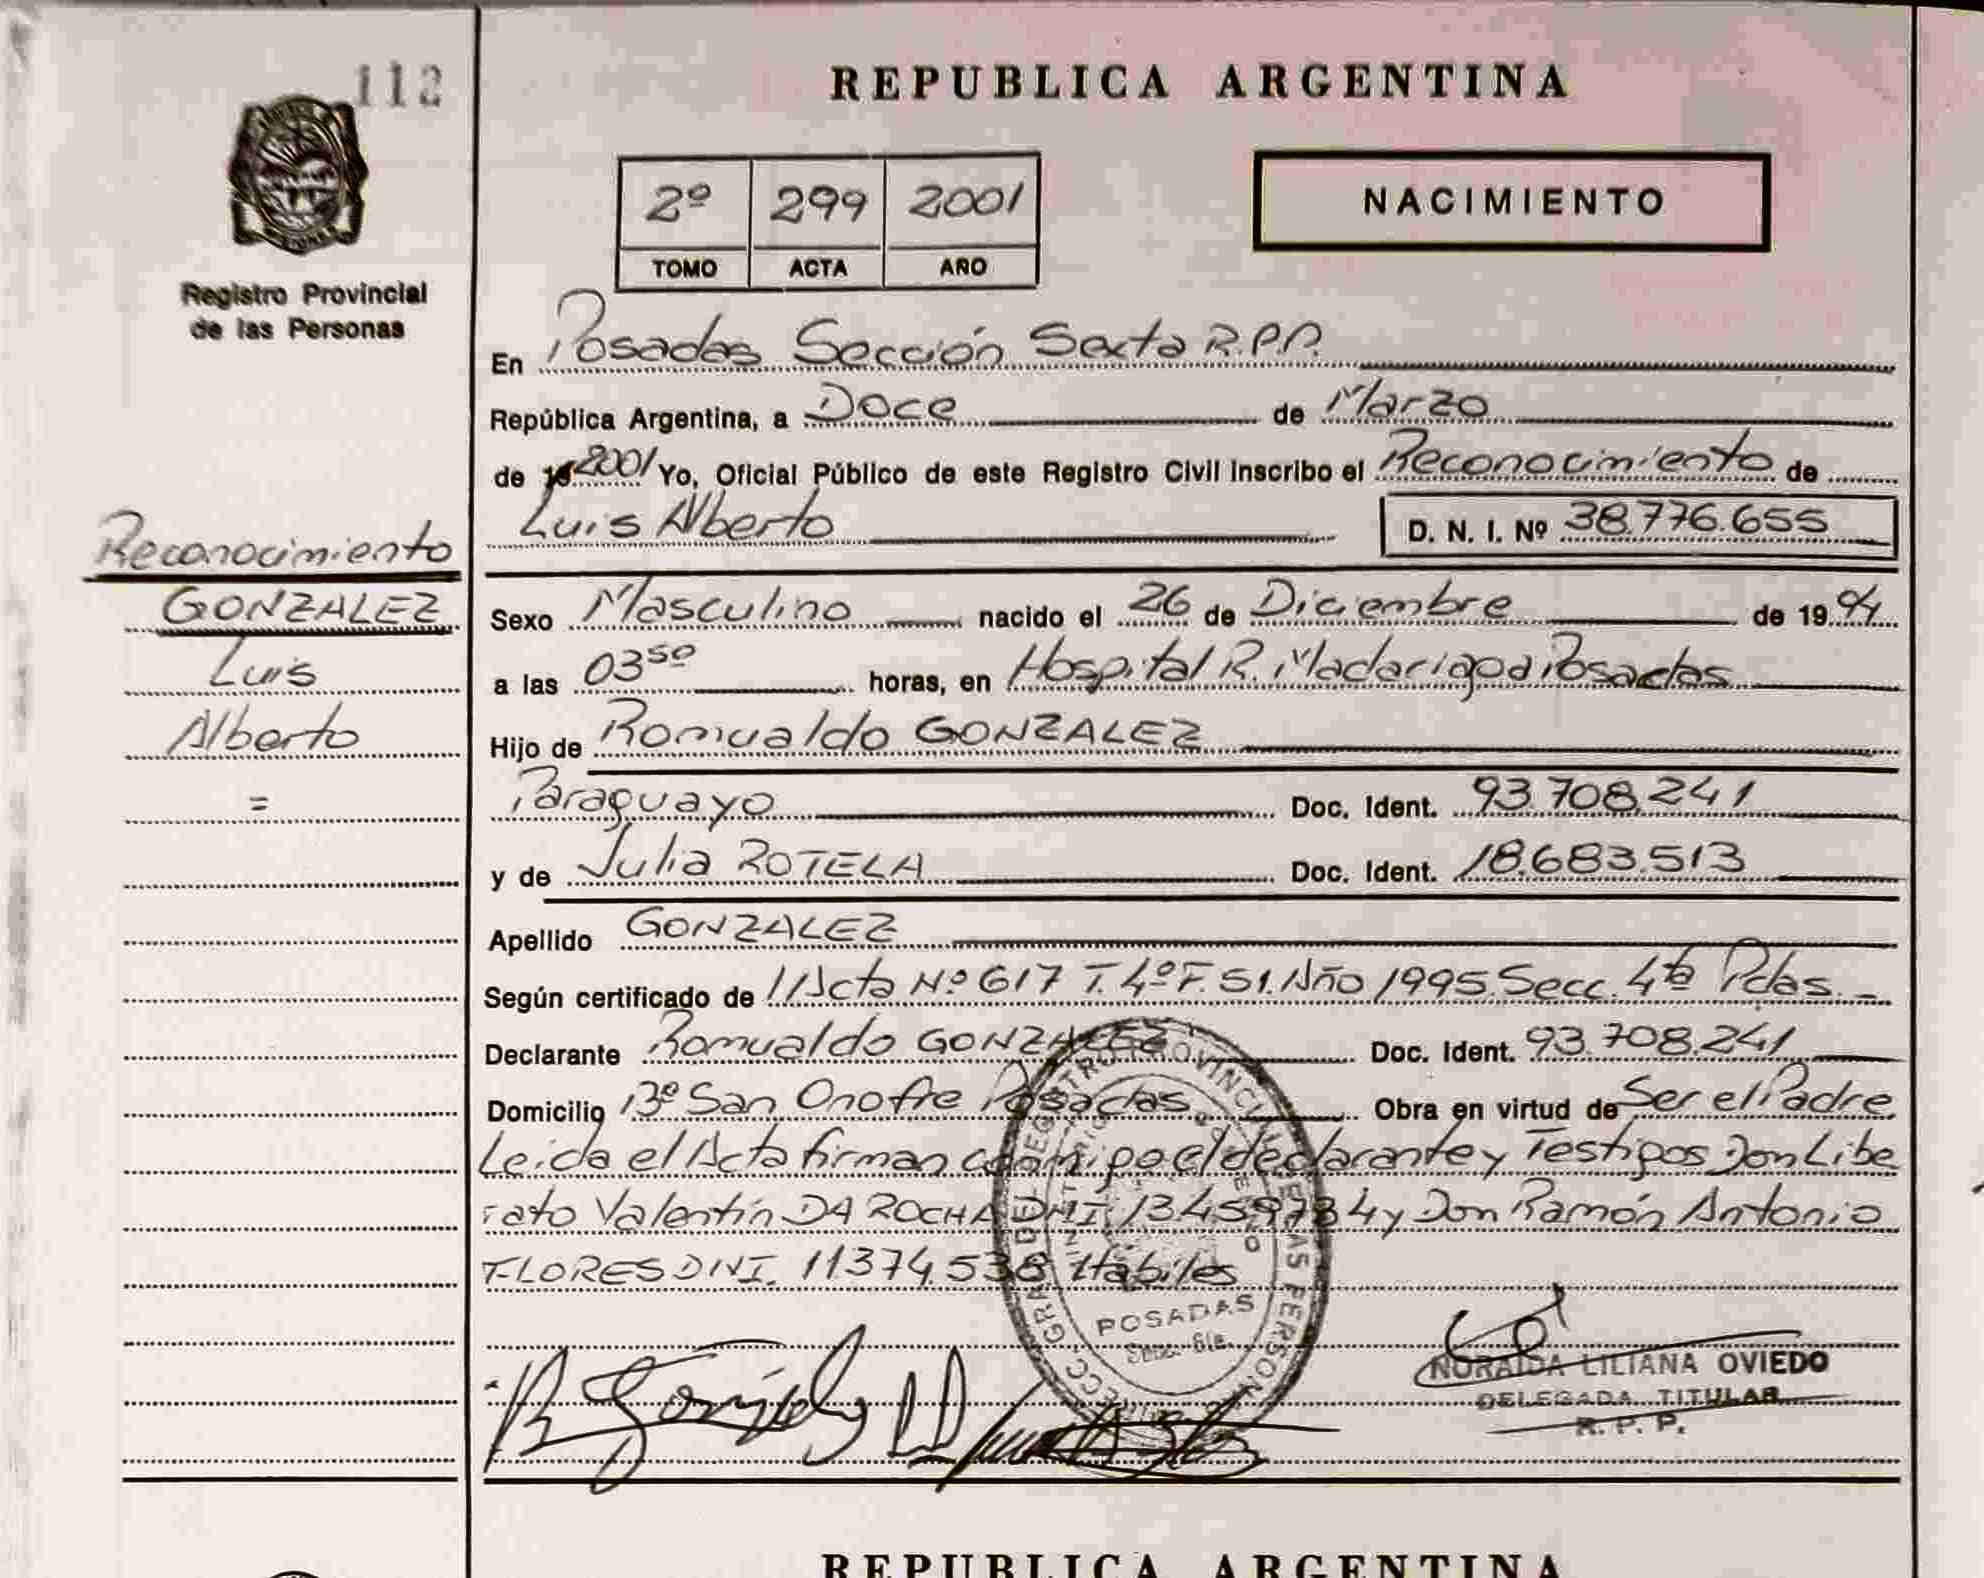 112
REPUBLICA ARGENTINA
2º 299 2001
TOMO ACTA AÑO
NACIMIENTO
Registro Provincial
de las Personas
En Posadas Sección Sexta R.P.P.
República Argentina, a Doce de Marzo
de 19 2001 Yo, Oficial Público de este Registro Civil Inscribo el Reconocimiento de
Luis Alberto D. N. I. Nº 38.776.655
Reconocimiento
GONZALEZ
Luis
Alberto
=
Sexo Masculino nacido el 26 de Diciembre de 19 94
a las 03 50 horas, en Hospital R. Madariaga Posadas
Hijo de Romualdo GONZALEZ
Paraguayo Doc. Ident. 93.708.241
y de Julia ROTELA Doc. Ident. 18.683.513
Apellido GONZALEZ
Según certificado de Acta Nº 617 T. 4º F. 51. Año 1995. Secc. 4ta Pdas.
Declarante Romualdo GONZALEZ Doc. Ident. 93.708.241
Domicilio Bº San Onofre Posadas. Obra en virtud de Ser el Padre
Leida el Acta firman conmigo el declarante y Testigos Don Libe
rato Valentín DA ROCHA DNI. y Don Ramón Antonio
FLORES DNI. 11374.538 Hábiles
POSADAS
Secc. 6ta.
NORAIDA LILIANA OVIEDO
DELEGADA TITULAR
R. P. P.
REPUBLICA ARGENTINA